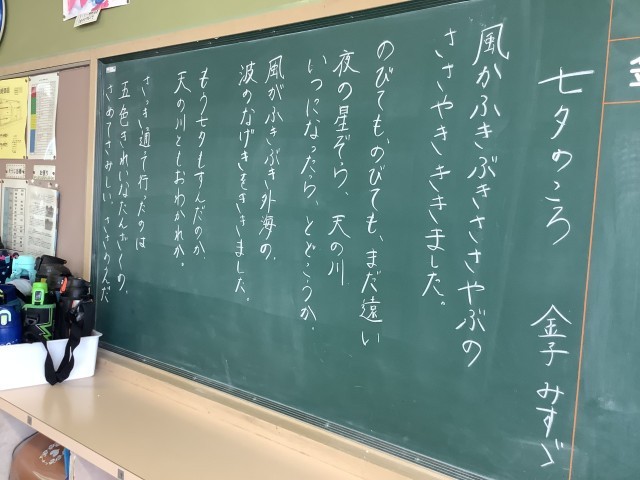 七夕のころ　金子みすゞ
風がふきぶきささやぶの
ささやきききました。
のびても、のびても、まだ遠い
夜の星ぞら、天の川
いつになったら、とどこうか。
風がふきぶき外海の、
波のなげきをききました。
もう七夕もすんだのか、
天の川ともおわかれか。
さっき通って行ったのは
五色きれいなたんざくの、
さめてさみしい、ささのえだ